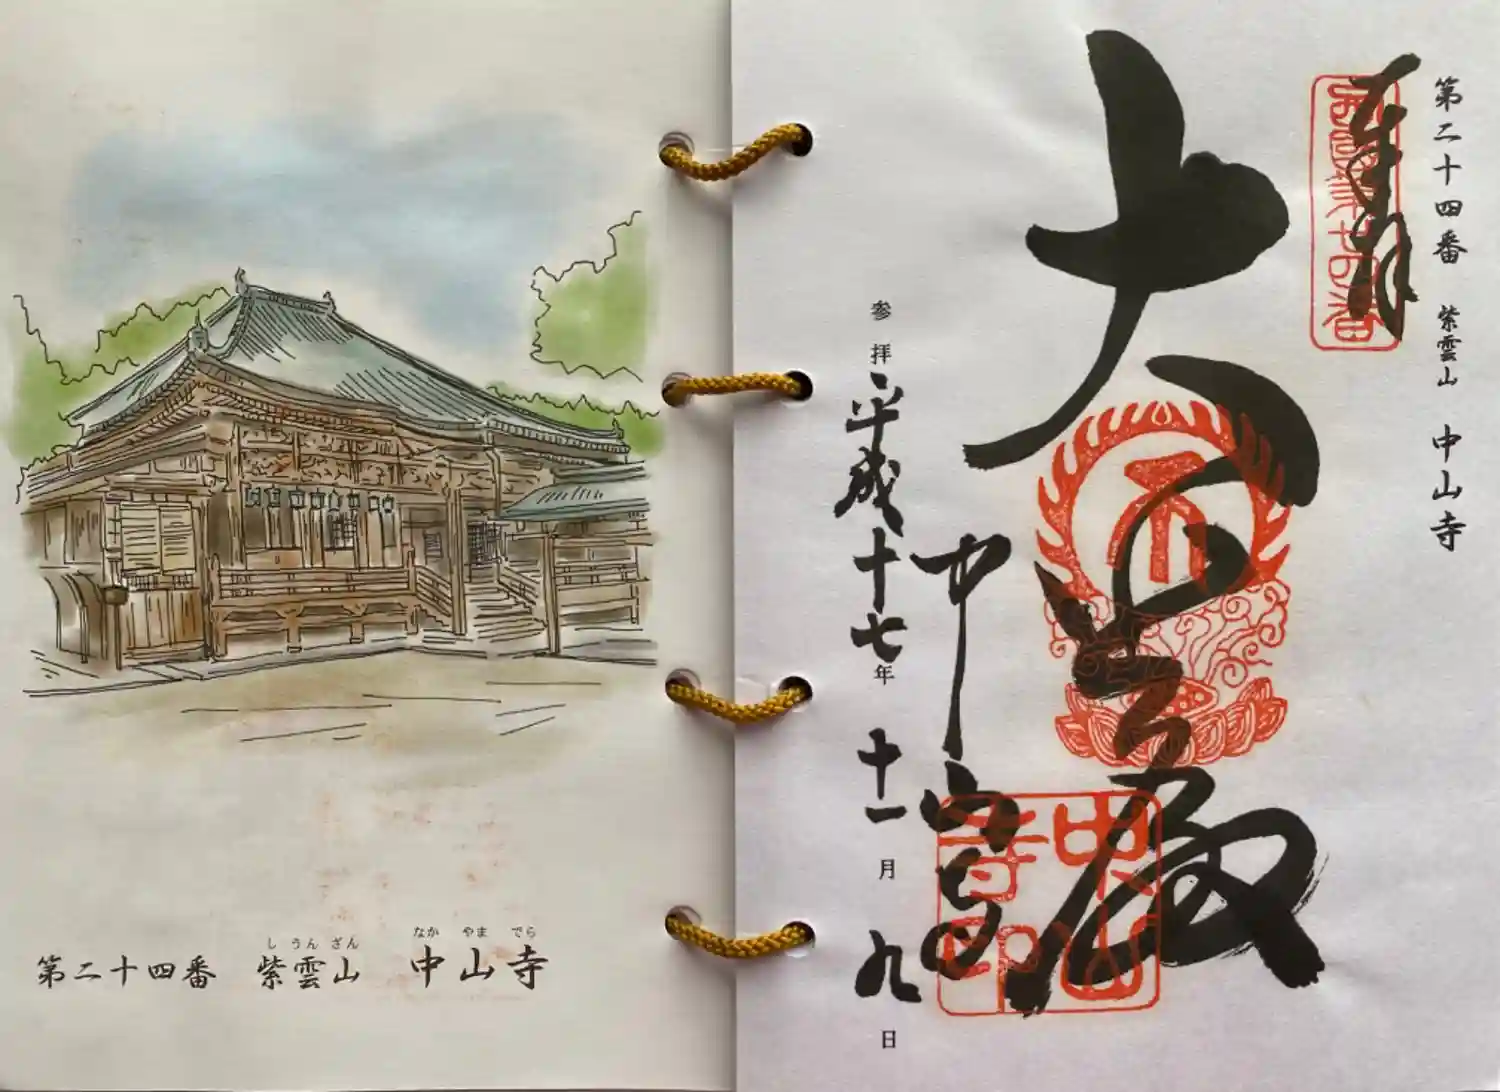 し うん ざん なか やま でら
第二十四番 紫雲山 中山寺
第二十四番 紫雲山 中山寺
奉拝
西国第廿四番
大悲殿
中山寺
中山寺印
参拝 平成十七年 十一月 九日